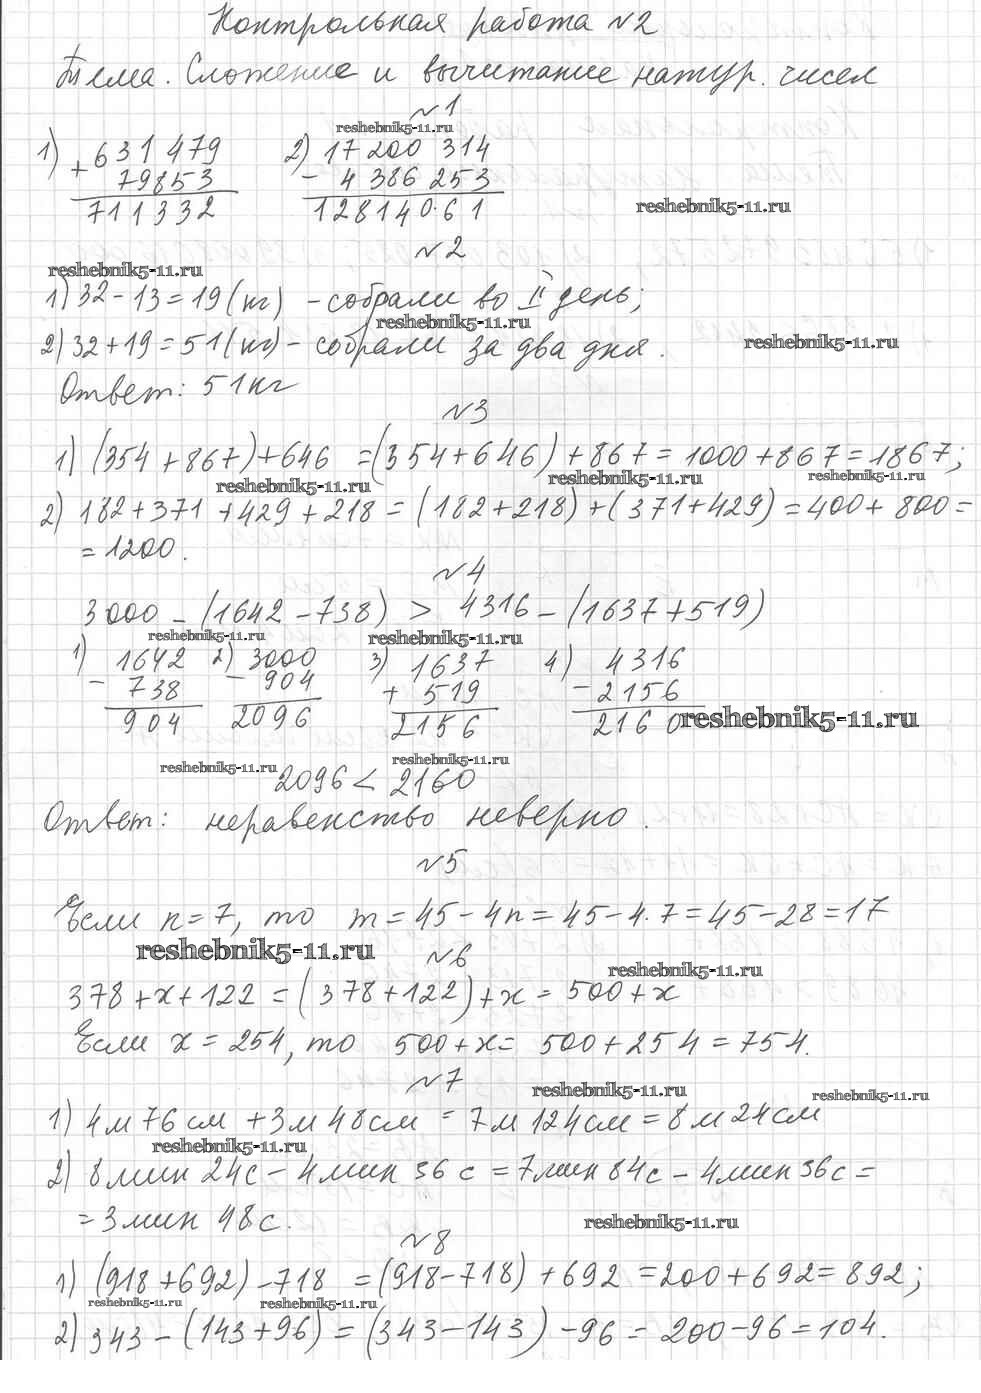 Контрольная работа №2
Тема. Сложение и вычитание натур. чисел
№1
reshebnik5-11.ru
1) + 631 479   2) 17 200 314
79853   - 4 386 253
711332   12814061
reshebnik5-11.ru
№2
reshebnik5-11.ru
1) 32-13=19(кг) -собрали во II день;
reshebnik5-11.ru
2) 32+19=51(кг)- собрали за два дня.
reshebnik5-11.ru
Ответ: 51кг
№3
1) (354+867)+646 =(354+646)+867=1000+867=1867;
reshebnik5-11.ru reshebnik5-11.ru reshebnik5-11.ru
2) 182+371+429+218=(182+218)+(371+429)=400+800=
=1200.
№4
3000-(1642-738) > 4316-(1637+519)
reshebnik5-11.ru reshebnik5-11.ru
1) 1642 2) 3000 3) 1637 4) 4316
- 738 - 904 + 519 - 2156
904 2096 2156 2160
reshebnik5-11.ru
reshebnik5-11.ru reshebnik5-11.ru
2096 < 2160
Ответ: неравенство неверно.
№5
Если n=7, то m=45-4n=45-4.7=45-28=17
reshebnik5-11.ru
№6
reshebnik5-11.ru
378+x+122=(378+122)+x=500+x
Если x=254, то 500+x= 500+254=754.
№7
reshebnik5-11.ru reshebnik5-11.ru
1) 4м 76см +3м 48см = 7м 124см=8м 24см
reshebnik5-11.ru
2) 8мин 24с - 4мин 36с =7мин 84с - 4мин 36с =
=3мин 48с.
reshebnik5-11.ru
№8
1) (918+692)-718 =(918-718)+692=200+692=892;
reshebnik5-11.ru reshebnik5-11.ru
2) 343-(143+96)=(343-143)-96=200-96=104.